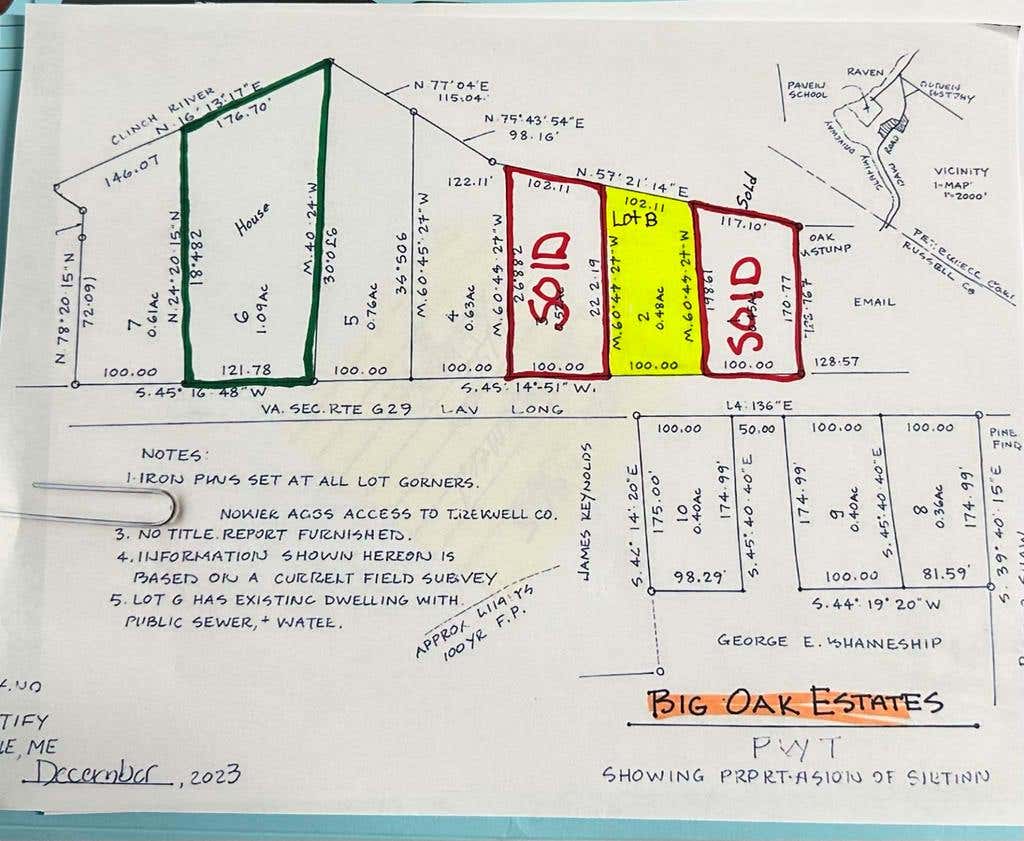 CLINCH RIIVER
N. 16° 13' 17" E
176.70'
146.07
N 77° 04' E
115.04'
N 75° 43' 54" E
98.16'
N. 57° 21' 14" E
122.11'
102.11
102.11
117.10'
Sold
RAVEN
PAVEIN
SCHOOL
DRIVEWAY
ROAD
VICINITY
1-MAP'
1"=2000'
RUSSELL CO
OAK
STUNP
EMAIL
N. 78° 20' 15" N
72.09)
7
0.61Ac
N. 24° 20' 15" N
18°4.82
House
6
1.09Ac
M. 40° 24' W
30'0.£6
5
0.76Ac
36°506
M. 60° 45' 27" W
4
0.63Ac
M. 60° 45' 27" W
26882
SOlD
222.19
Lot B
M. 60° 44' 27" W
2
0.48Ac
M. 60° 45' 27" W
19861
SOlD
170.77
128.57
100.00
121.78
100.00
100.00
100.00
100.00
100.00
S. 45° 16' 48" W
S. 45° 14' 51" W.
VA. SEC. RTE G29 LAV LONG
L4: 136"E
NOTES:
1. IRON PWS SET AT ALL LOT GORNERS.
NOWIEK AG3S ACCESS TO T.REKWELL CO.
3. NO TITLE REPORT FURNISHED.
4. INFORMATION SHOWN HEREON IS
BASED ON A CURRENT FIELD SUBVEY
5. LOT G HAS EXISTING DWELLING WITH
PUBLIC SEWER, + WATEE.
100YR F.P.
JAMES REYNOLDS
100.00
50.00
100.00
100.00
PINE
FIND
S. 42° 14' 20" E
175.00'
10
0.40Ac
174.99'
S. 45° 40' 40" E
174.99'
9
0.40Ac
S. 45° 40' 40" E
8
0.36Ac
174.99'
S. 39° 40' 15" E
98.29'
100.00
81.59'
S. 44° 19' 20" W
GEORGE E. WHANNESHIP
BIG OAK ESTATES
PWT
SHOWING PRPRT-ASION OF SILTINN
TIFY
LE, ME
December, 2023